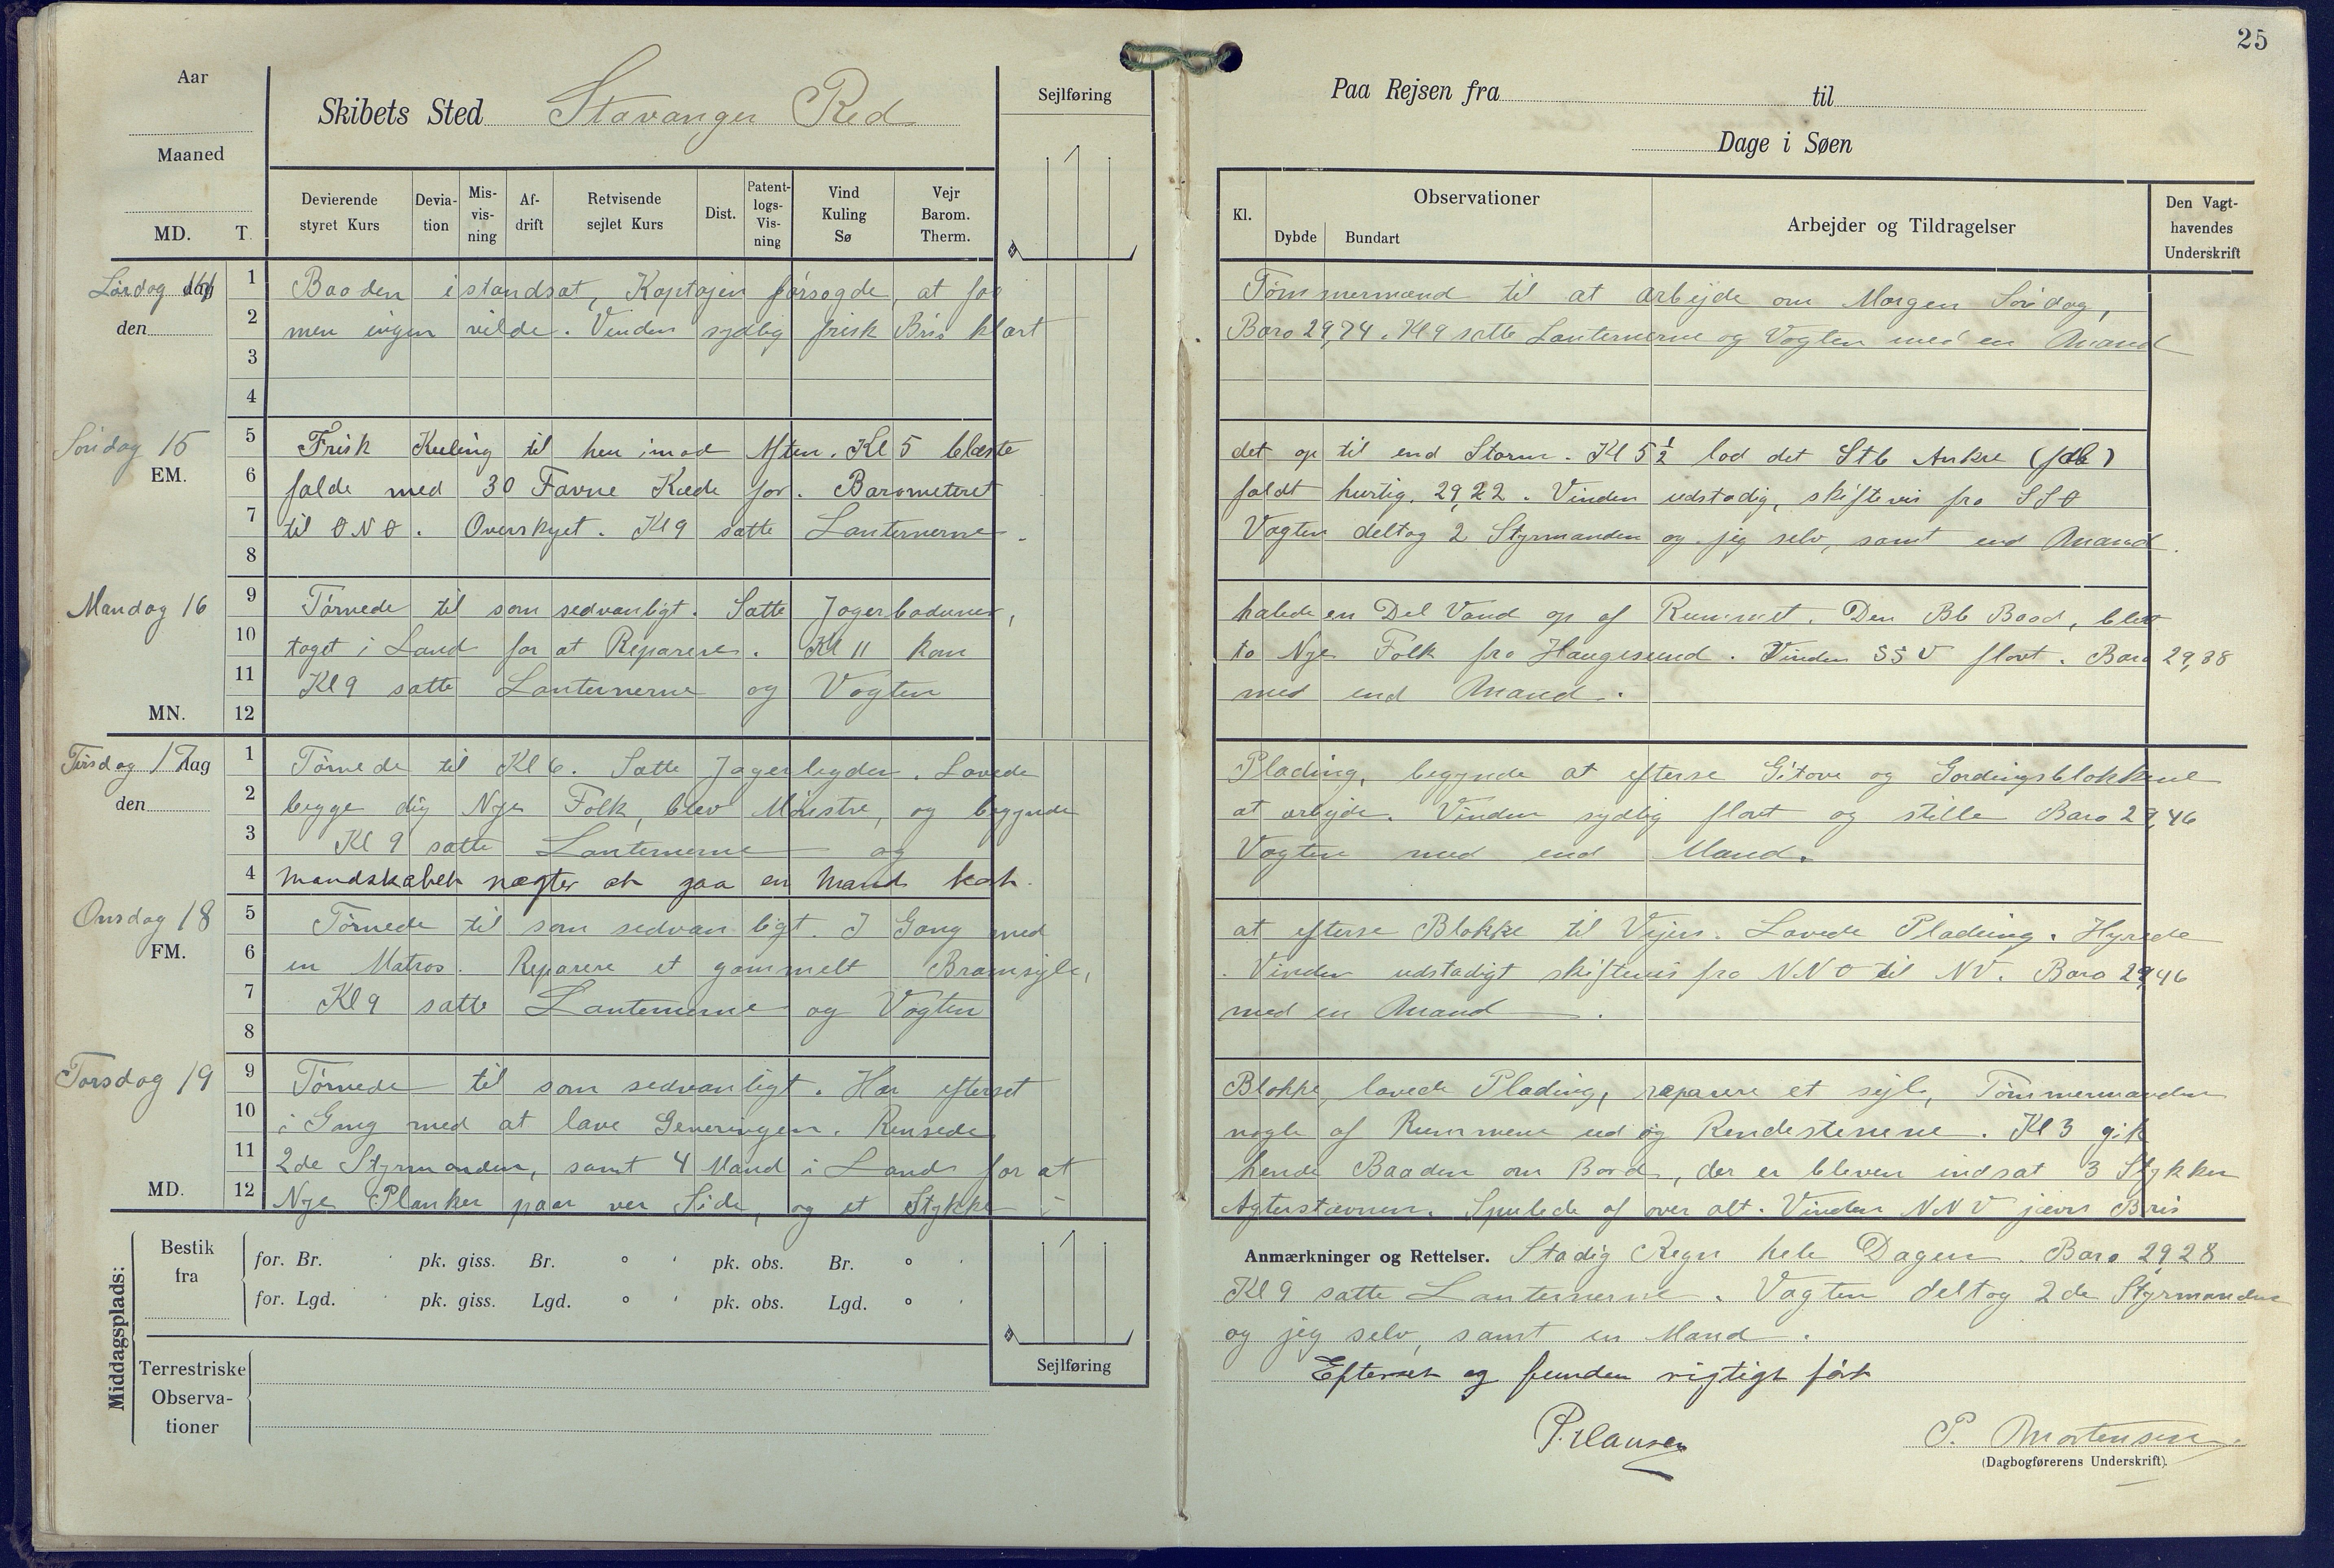 25
Aar
Maaned
MD. T.
Skibets Sted Stavanger Red
Sejlføring
Paa Rejsen fra til
Dage i Søen
Devierende styret Kurs
Devia-tion
Mis-vis-ning
Af-drift
Retvisende sejlet Kurs
Dist.
Patent-logs-Vis-ning
Vind Kuling Sø
Vejr Barom. Therm.
Kl.
Observationer
Dybde
Bundart
Arbejder og Tildragelser
Den Vagt-havendes Underskrift
Lørdag dag
den
1 Baaden istandsat, Kaptajen forsøgde, at faa Tømmermænd til at arbejde om Morgen Søndag,
2 men ingen vilde. Vinden sydlig frisk Bris klart Baro 29,74. Kl 9 satte Lanternerne og Vagten med en Mand
3
4
Søndag 15
EM.
5 Frisk Kuling til hen imod Aften. Kl 5 blæste det op til end Storm. Kl 5 1/2 lod det Stb Anker
6 falde med 30 Favne Kæde for. Barometeret faldt hurtig. 29,22. Vinden ustadig, skiftevis fra SSO
7 til ONO. Overskyet. Kl 9 satte Lanternerne. Vagten deltog 2 Styrmanden og jeg selv, samt end Mand.
8
Mandag 16
9 Tørnede til som sedvanligt. Satte Jager halede en Del Vand op af Rummet. Den Bb Baad, blev
10 taget i Land for at Reparere. Kl 11 kom to Nye Folk fra Haugesund. Vinden SSV flovt. Baro 29,38
11 Kl 9 satte Lanternerne og Vagten med end Mand.
MN.
12
Tirsdag 17 dag
den
1 Tørnede til Kl 6. Satte Jager Lavede Plading, begynde at efterse Gitove og Gordingsblokkene
2 begge Nye Folk, blev Mønstre, og begynde at arbejde. Vinden sydlig flovt og stille Baro 29,46
3 Kl 9 satte Lanternerne og Vagten med end Mand.
4 Mandskabet nægter at gaa en Mand kort.
Onsdag 18
FM.
5 Tørnede til som sedvanligt. I Gang med at efterse Blokke til Vejrs. Lavede Plading. Hyrede
6 en Matros. Reparere et gammelt Bramsejle, Vinden ustadigt skiftevis fra NNO til NV. Baro 29,46
7 Kl 9 satte Lanternerne og Vagten med en Mand.
8
Torsdag 19
9 Tørnede til som sedvanligt. Har efterset Blokke, lavede Plading, reparere et sejle, Tømmermanden
10 i Gang med at lave Generingen. Rensede nogle af Rummene ud og Rendestenene. Kl 3 gik
11 2de Styrmanden, samt 4 Mand i Land for at hende Baaden om Bord, der er bleven indsat 3 Stykker
MD.
12 Nye Planker paa ver Side, og et Stykke i Agterstævnen. Spulede af over alt. Vinden NNV jævn Bris
Middagsplads:
Bestik fra
for. Br. pk. giss. Br. ° ' pk. obs. Br. ° '
for. Lgd. pk. giss. Lgd. ° ' pk. obs. Lgd. ° '
Sejlføring
Terrestriske Observa-tioner
Anmærkninger og Rettelser. Stadig Regn hele Dagen. Baro 29,28
Kl 9 satte Lanternerne. Vagten deltog 2de Styrmanden
og jeg selv, samt en Mand.
Efterset og funden rigtigt ført
P. Clausen
P. Mortensen
(Dagbogførerens Underskrift).